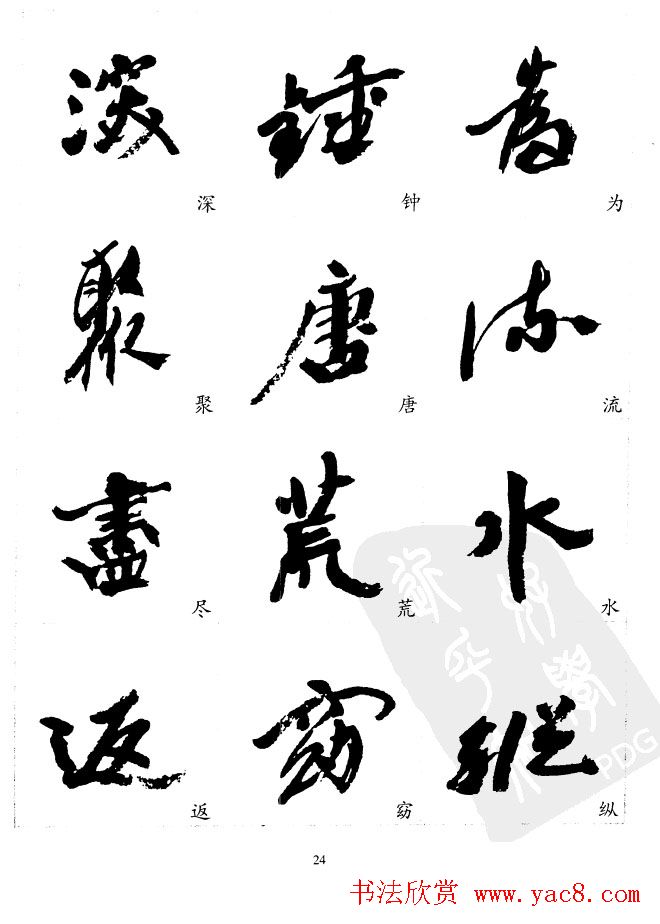 深 鍾 為
深 钟 为
聚 唐 流
聚 唐 流
盡 荒 水
尽 荒 水
返 窈 縱
返 窈 纵
PDG
24
书法欣赏 www.yac8.com